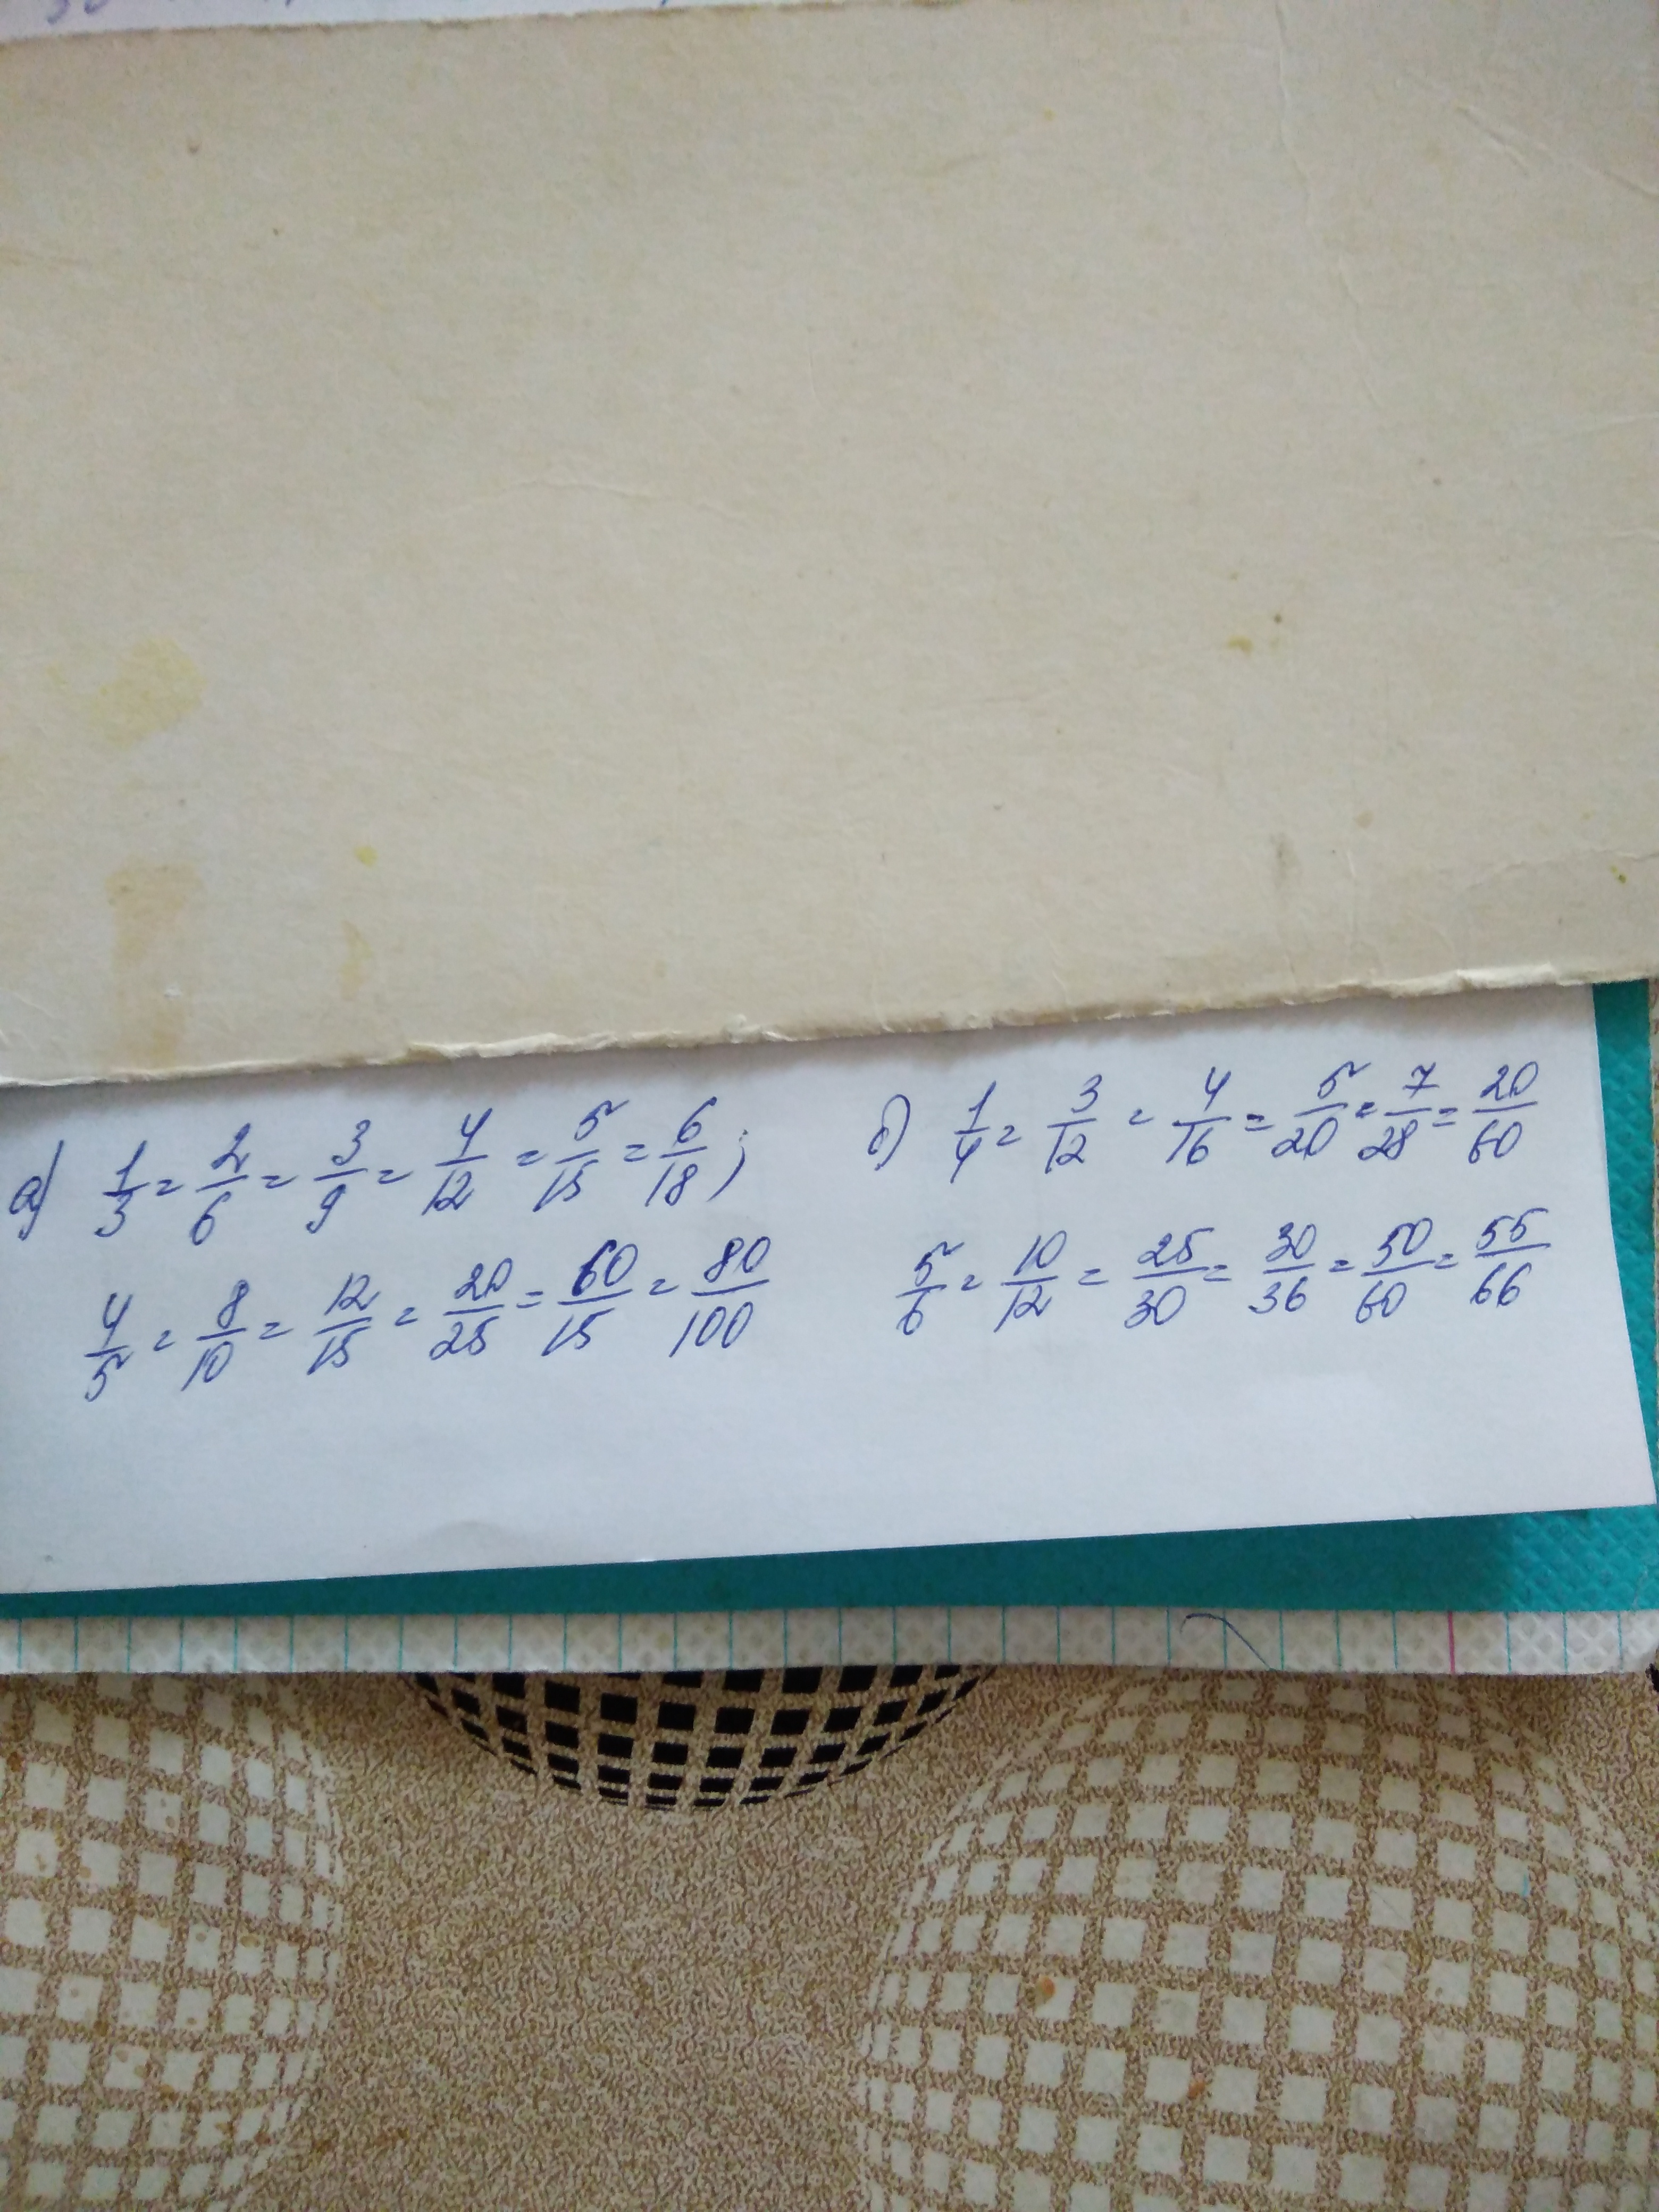 а) 1/3 = 2/6 = 3/9 = 4/12 = 5/15 = 6/18;
4/5 = 8/10 = 12/15 = 20/25 = 60/15 = 80/100
б) 1/4 = 3/12 = 4/16 = 5/20 = 7/28 = 20/60
5/6 = 10/12 = 25/30 = 30/36 = 50/60 = 55/66